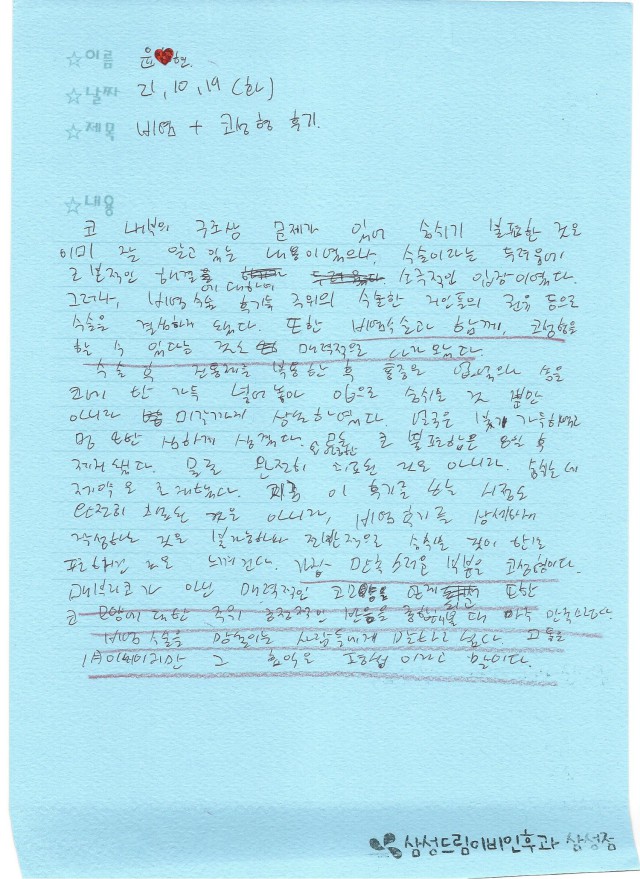 ☆이름 윤❤현.
☆날짜 21, 10, 19 (화)
☆제목 비염 + 코성형 후기.
☆내용
코 내부의 구조상 문제가 있어 숨쉬기 불편한 것은
이미 잘 알고 있는 내용이었으나, 수술이라는 두려움에
근본적인 해결 에 대하여 소극적인 입장이었다.
그러나, 비염수술 후기들 주위의 수술한 지인들의 권유 등으로
수술을 결심하게 됐다. 또한 비염수술과 함께, 코성형을
할 수 있다는 것도 매력적으로 다가왔다.
수술 후 진통제를 복용한 후 통증은 없었으나 솜을
코에 한 가득 넣어놓아 입으로 숨쉬는 것 뿐만
아니라 미각까지 상실하였다. 얼굴은 붓기 가득하였고
멍 또한 심하게 생겼다. 코 불편함은 8일 후
제거됐다. 물론 완전히 치료된 것은 아니라. 숨쉬는데
제약은 존재했다. 이 후기를 쓰는 시점도
완전히 치료된 것은 아니라, 비염후기를 상세하게
작성하는 것은 불가능하나 전반적으로 숨쉬는 것이 한층
편해진 것으로 느껴진다. 가장 만족스러운 부분은 코성형이다.
매부리코가 아닌 매력적인 코 또한
코 모양에 대한 주위 긍정적인 반응을 종합해볼 때 매우 만족한다.
비염 수술을 망설이는 사람들에게 말하고 싶다. 고통은
1주일이지만 그 효익은 평생이라고 말이다.
삼성드림이비인후과 삼성점